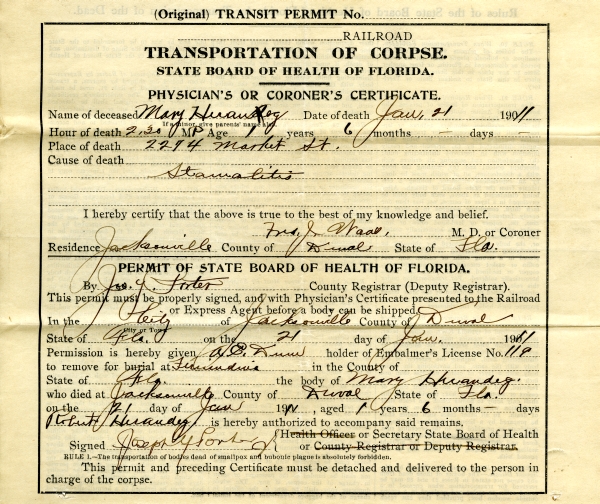 (Original) TRANSIT PERMIT No.
RAILROAD
TRANSPORTATION OF CORPSE.
STATE BOARD OF HEALTH OF FLORIDA.
PHYSICIAN'S OR CORONER'S CERTIFICATE.
Name of deceased Mary Date of death Jan, 21 1901
If minor, give parents' name also
Hour of death 2,30 M P Age 1 years 6 months – days
Place of death 2294 Market St.
Cause of death
Stamalitis
I hereby certify that the above is true to the best of my knowledge and belief.
J. Wade, M. D. or Coroner
Residence Jacksonville County of Duval State of Fla.
PERMIT OF STATE BOARD OF HEALTH OF FLORIDA.
By Jos. Y. Porter County Registrar (Deputy Registrar).
This permit must be properly signed, and with Physician's Certificate presented to the Railroad
or Express Agent before a body can be shipped.
In the City of Jacksonville County of Duval
City or Town
State of Fla. on the 21 day of Jan. 190
Permission is hereby given holder of Embalmer's License No. 119
to remove for burial at Fernandina in the County of
State of Fla. the body of Mary
who died at Jacksonville County of Duval State of Fla.
on the 21 day of Jan 191, aged 1 years 6 months – days
Robert is hereby authorized to accompany said remains.
(Health Officer or Secretary State Board of Health
Signed Joseph Y Porter or County Registrar or Deputy Registrar.
RULE 1.—The transportation of bodies dead of smallpox and bubonic plague is absolutely forbidden.
This permit and preceding Certificate must be detached and delivered to the person in
charge of the corpse.